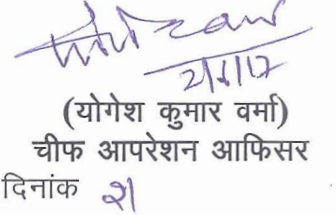 2/6/17
(योगेश कुमार वर्मा)
चीफ आपरेशन आफिसर
दिनांक